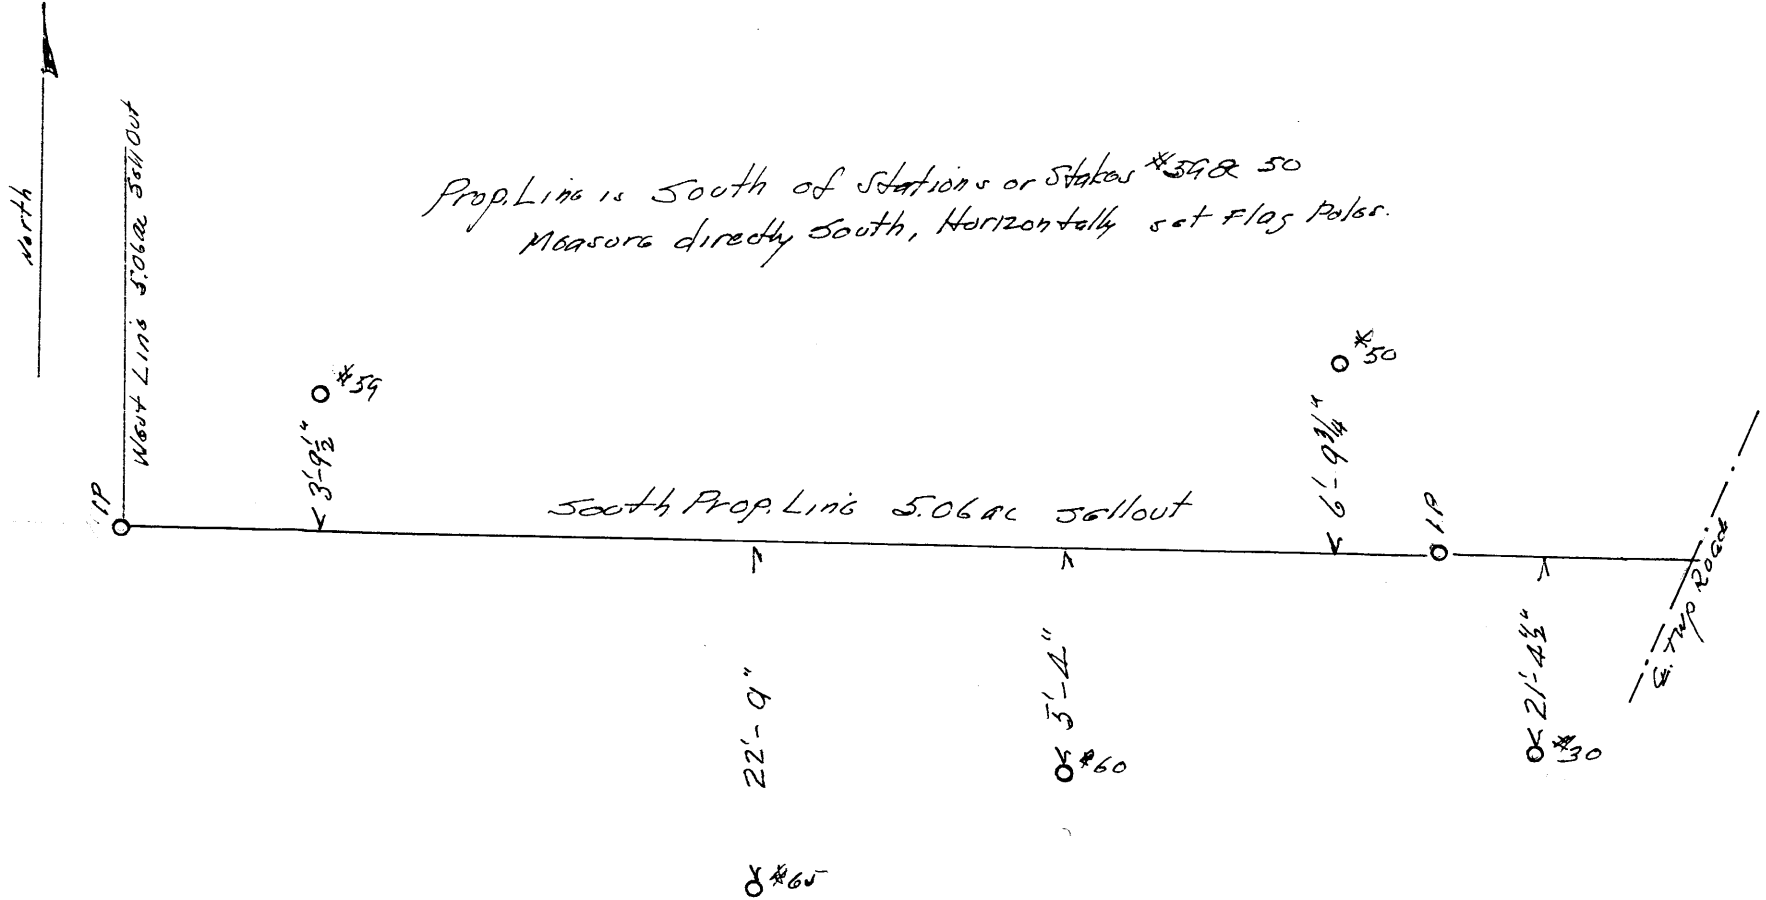 North
West Line 5.06ac Sell Out
Prop. Line is South of Stations or Stakes #59 & 50
Measure directly South, Horizontally set Flag Poles.
#59
3'-9½"
#50
6'-9¾"
IP
South Prop. Line 5.06ac sellout
IP
22'-9"
#65
5'-4"
#60
21'-4½"
#30
℄. Twp Road